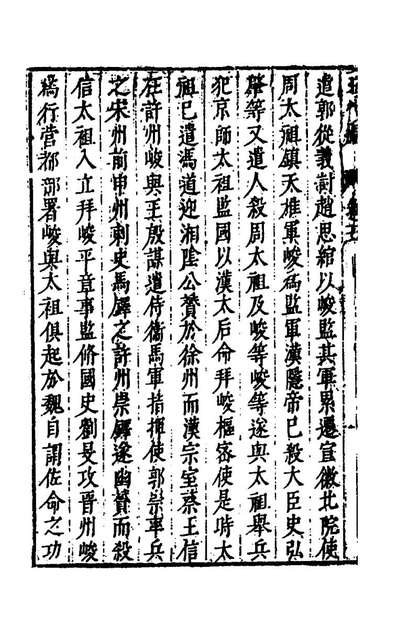 遣郭從義討趙思綰以峻監其軍累遷宣徽北院使
周太祖鎮天雄軍峻爲監軍漢隱帝已殺大臣史弘
肇等又遣人殺周太祖及峻等峻等遂與太祖舉兵
犯京師太祖監國以漢太后命拜峻樞密使是時太
祖已遣馮道迎湘隂公贇於徐州而漢宗室蔡王信
在許州峻與王殷謀遣侍衛馬軍指揮使郭崇率兵
之宋州前申州刺史馬鐸之許州崇鐸遂幽贇而殺
信太祖入立拜峻平章事監脩國史劉旻攻晉州峻
爲行營都部署峻與太祖俱起於魏自謂佐命之功